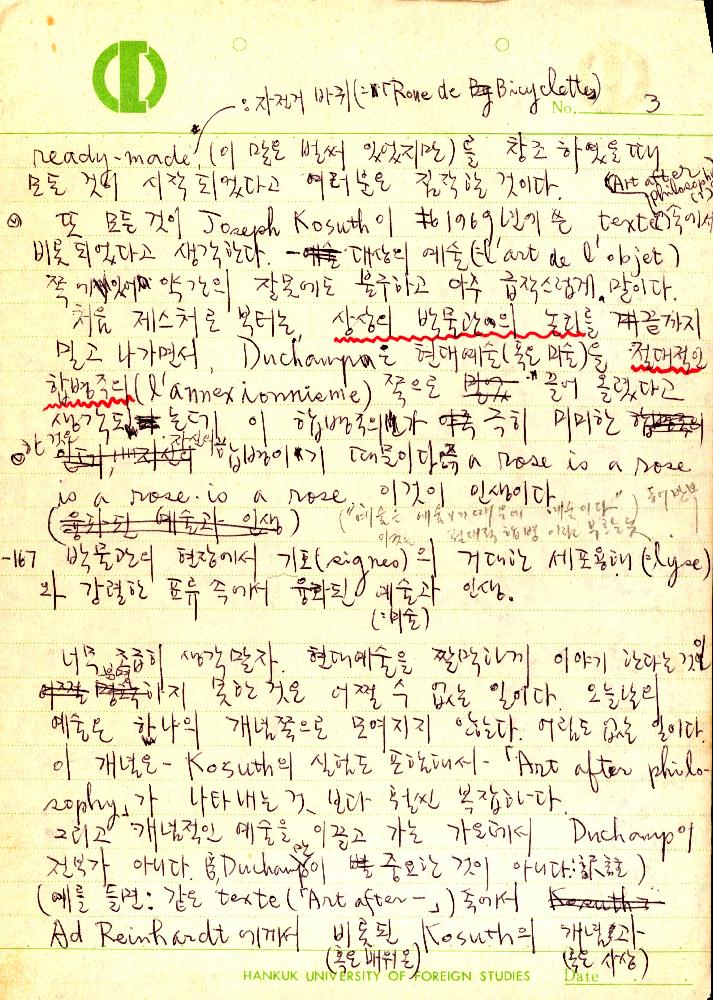 : 자전거 바퀴(=「Roue de Bicyclette」)
No. 3
ready-made (이 말은 벌써 있었지만)를 창조 하였을 때
모든 것이 시작 되었다고 여러분은 짐작할 것이다.
(Art after philosophy (1))
또 모든 것이 Joseph Kosuth이 1969년에 쓴 texte 속에서
비롯 되었다고 생각한다. 대상의 예술(=l'art de l'objet)
쪽에 약간의 잘못에도 불구하고 아주 급작스럽게 말이다.
처음 제스처로 부터는, 상상의 박물관의 논리를 끝까지
밀고 나가면서, Duchamp은 현대예술(혹은 미술)을 절대적인
합병주의(l'annexionnisme) 쪽으로 끌어 올렸다고
생각도 이 합병주의가 극히 미미한
합병이기 때문이다. a rose is a rose
is a rose is a rose 이것이 인생이다.
("예술은 예술이기 때문에 예술이다") 동어반복
절대적 합병 이라 부르는
(융화된 예술과 인생)
-167 박물관의 현장에서 기호(signes)의 거대한 세포용해(=lyse)
와 강렬한 표류 속에서 융화된 예술과 인생.
(=미술)
너무 조급히 생각말자. 현대예술을 짤막하게 이야기 한다는 것을
하지 못한 것은 어쩔 수 없는 일이다. 오늘날의
예술은 하나의 개념쪽으로 모여지지 않는다. 어림도 없는 일이다.
이 개념은 - Kosuth의 실험도 포함해서 - 「Art after philo-
sophy」가 나타내는 것 보다 훨씬 복잡하다.
그리고 개념적인 예술을 이끌고 가는 가운데서 Duchamp이
전부가 아니다. Duchamp만이 중요한 것이 아니다: 譯註)
(예를 들면: 같은 texte(「Art after-」) 속에서
Ad Reinhardt 에게서 비롯된 Kosuth의 개념과-
(혹은 배워온) (혹은 사상)
HANKUK UNIVERSITY OF FOREIGN STUDIES Date . . .